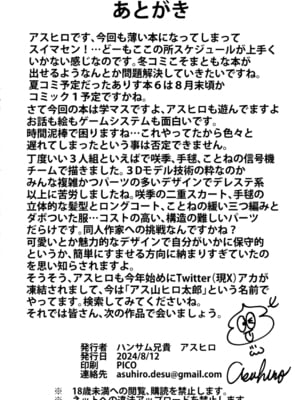 あとがき
アスヒロです、今回も薄い本になってしまって
スイマセン！…どーもここの所スケジュールが上手く
いかない感じなのです。冬コミこそまともな本が
出せるようなんとか問題解決していきたいですね。
夏コミ予定だったありす本６は８月末頃か
コミック１予定ですかね。
さて今回の本は学マスですよ、アスヒロも遊んでますよ
お話も絵もゲームシステムも面白いです。
時間泥棒で困りますね…これやってたから色々と
遅れてしまったという事は否定できません。
丁度いい３人組といえばで咲季、手毬、ことねの信号機
チームで描きました。３Dモデル技術の粋なのか
みんな複雑かつパーツの多いデザインでデレステ系
以上に苦労しましたね。咲季の二重スカート、手毬の
立体的な髪型とロングコート、ことねの緩い三つ編みと
ダボついた服…コストの高い、構造の難しいパーツ
だらけです。同人作家への挑戦なんですかね？
可愛いとか魅力的なデザインで自分がいかに保守的
というか、簡単にすませる方向に納まりすぎていたの
を思い知らされますよ。
そうそう、アスヒロも今年始めにTwitter（現X）アカが
凍結されまして、今は「アス山ヒロ太郎」という名前で
やってます。検索してみてくださいね。
それでは皆さん、次の作品で会いましょう。
発行者　ハンサム兄貴　アスヒロ
発行日　2024/8/12
印刷　PICO
連絡先　asuhiro.desu@gmail.com
asuhiro
※　18歳未満への閲覧、購読を禁止します。
※　ネットへの違法アップロードを禁止します。